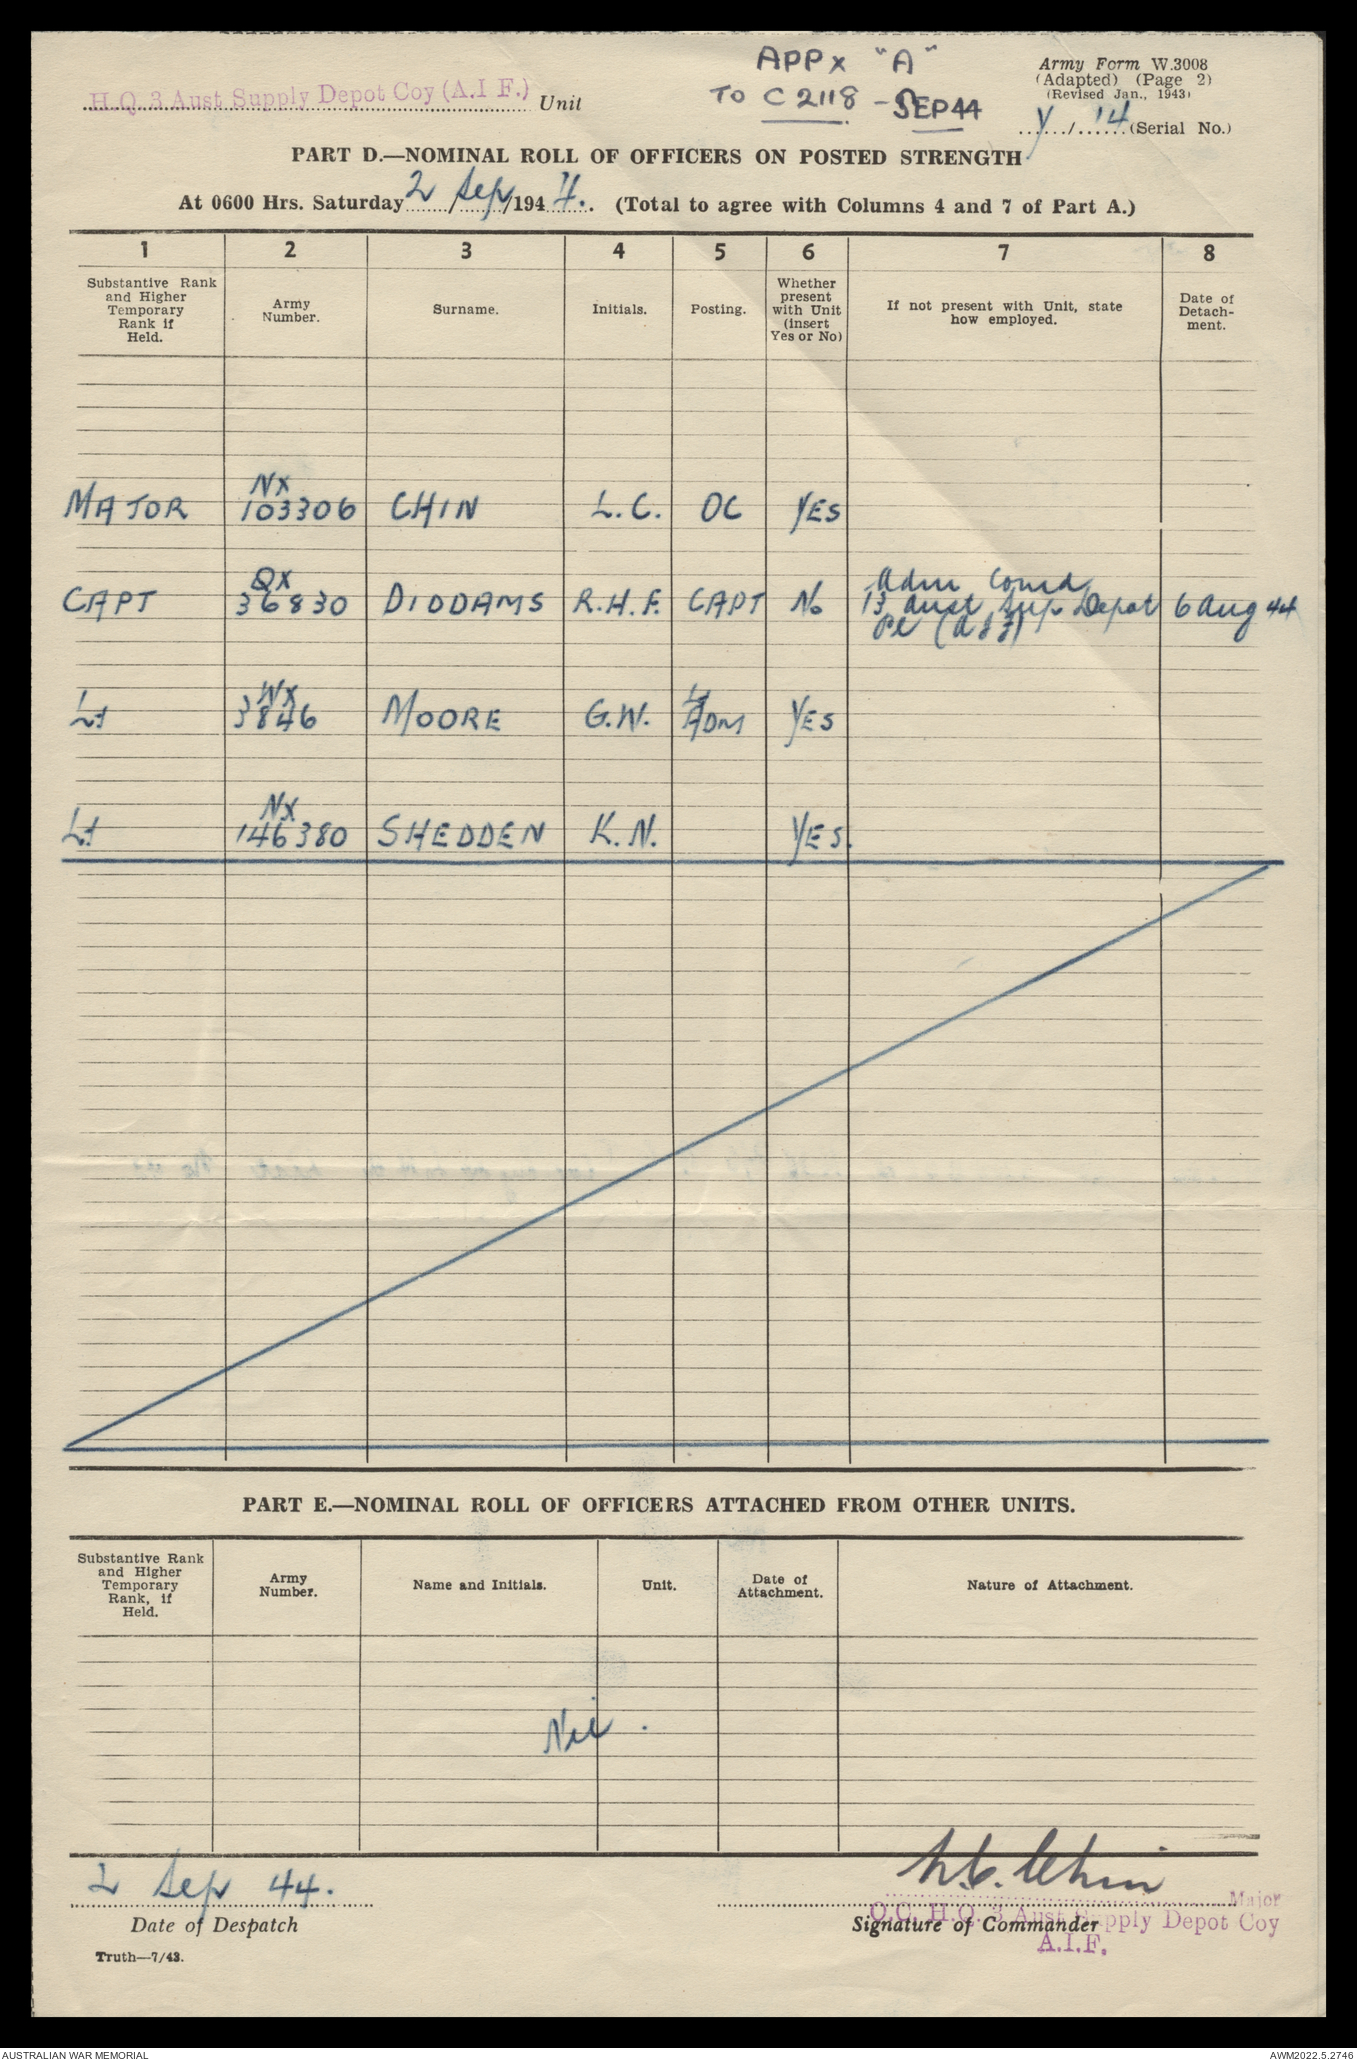 APPx "A"
TO C2118 - SEP44
Army Form W.3008
(Adapted) (Page 2)
(Revised Jan., 1943)
H.Q. 3 Aust Supply Depot Coy (A.I.F.) Unit
Y/14 (Serial No.)
PART D.—NOMINAL ROLL OF OFFICERS ON POSTED STRENGTH
At 0600 Hrs. Saturday 2 / Sep /1944. (Total to agree with Columns 4 and 7 of Part A.)
1 2 3 4 5 6 7 8
Substantive Rank and Higher Temporary Rank if Held. Army Number. Surname. Initials. Posting. Whether present with Unit (insert Yes or No) If not present with Unit, state how employed. Date of Detach-ment.
MAJOR NX 103306 CHIN L.C. OC YES
CAPT QX 36830 DIDDAMS R.H.F. CAPT No Adm Comd 13 Aust Sup Depot Pl (AIF) 6 Aug 44
Lt WX 3846 MOORE G.W. Lt ADM YES
Lt NX 146380 SHEDDEN K.N. YES.
PART E.—NOMINAL ROLL OF OFFICERS ATTACHED FROM OTHER UNITS.
Substantive Rank and Higher Temporary Rank, if Held. Army Number. Name and Initials. Unit. Date of Attachment. Nature of Attachment.
Nil.
2 Sep 44.
Date of Despatch
L.C. Chin
Major
O.C. H.Q. 3 Aust Supply Depot Coy
Signature of Commander
A.I.F.
Truth—7/43.
AUSTRALIAN WAR MEMORIAL
AWM2022.5.2746